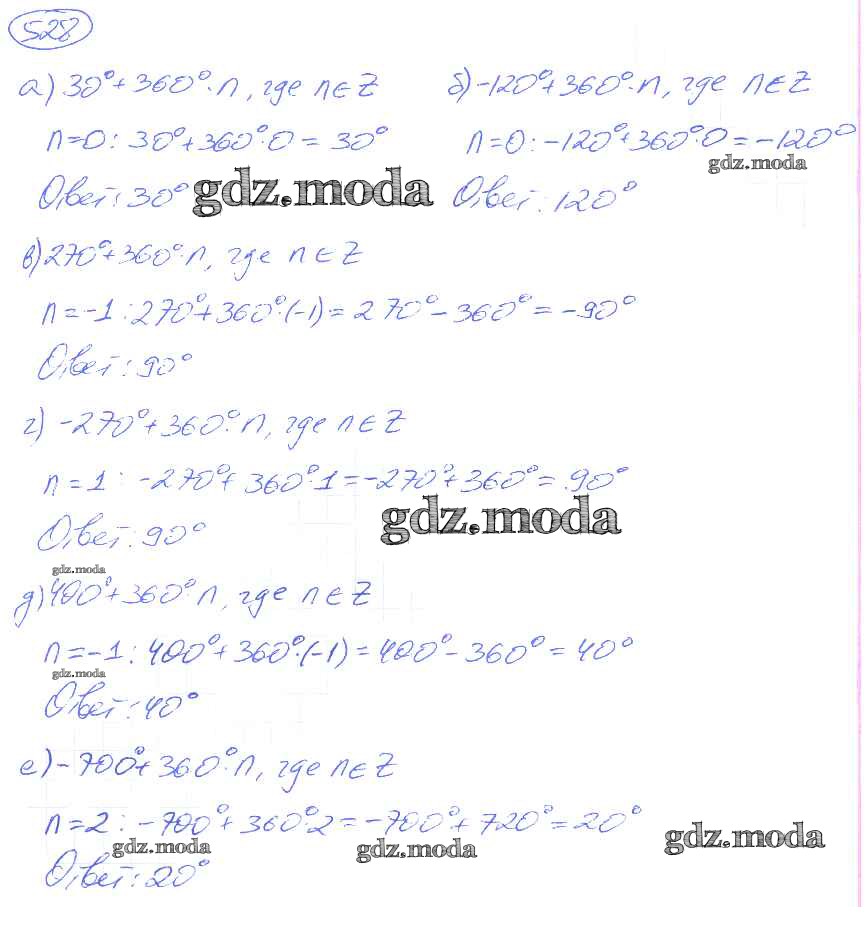 528
а) 30° + 360°·n, где n∈Z
n=0: 30°+360°·0 = 30°
Ответ: 30°
gdz.moda
б) -120°+360°·n, где n∈Z
n=0: -120°+360°·0 = -120°
gdz.moda
Ответ: 120°
в) 270°+360°·n, где n∈Z
n = -1: 270°+360°·(-1) = 270° - 360° = -90°
Ответ: 90°
г) -270°+360°·n, где n∈Z
n = 1: -270°+360°·1 = -270°+360° = 90°
gdz.moda
Ответ: 90°
gdz.moda
д) 400°+360°·n, где n∈Z
n = -1: 400°+360°·(-1) = 400° - 360° = 40°
gdz.moda
Ответ: 40°
е) -700°+360°·n, где n∈Z
n = 2: -700°+360°·2 = -700°+720° = 20°
gdz.moda gdz.moda gdz.moda
Ответ: 20°